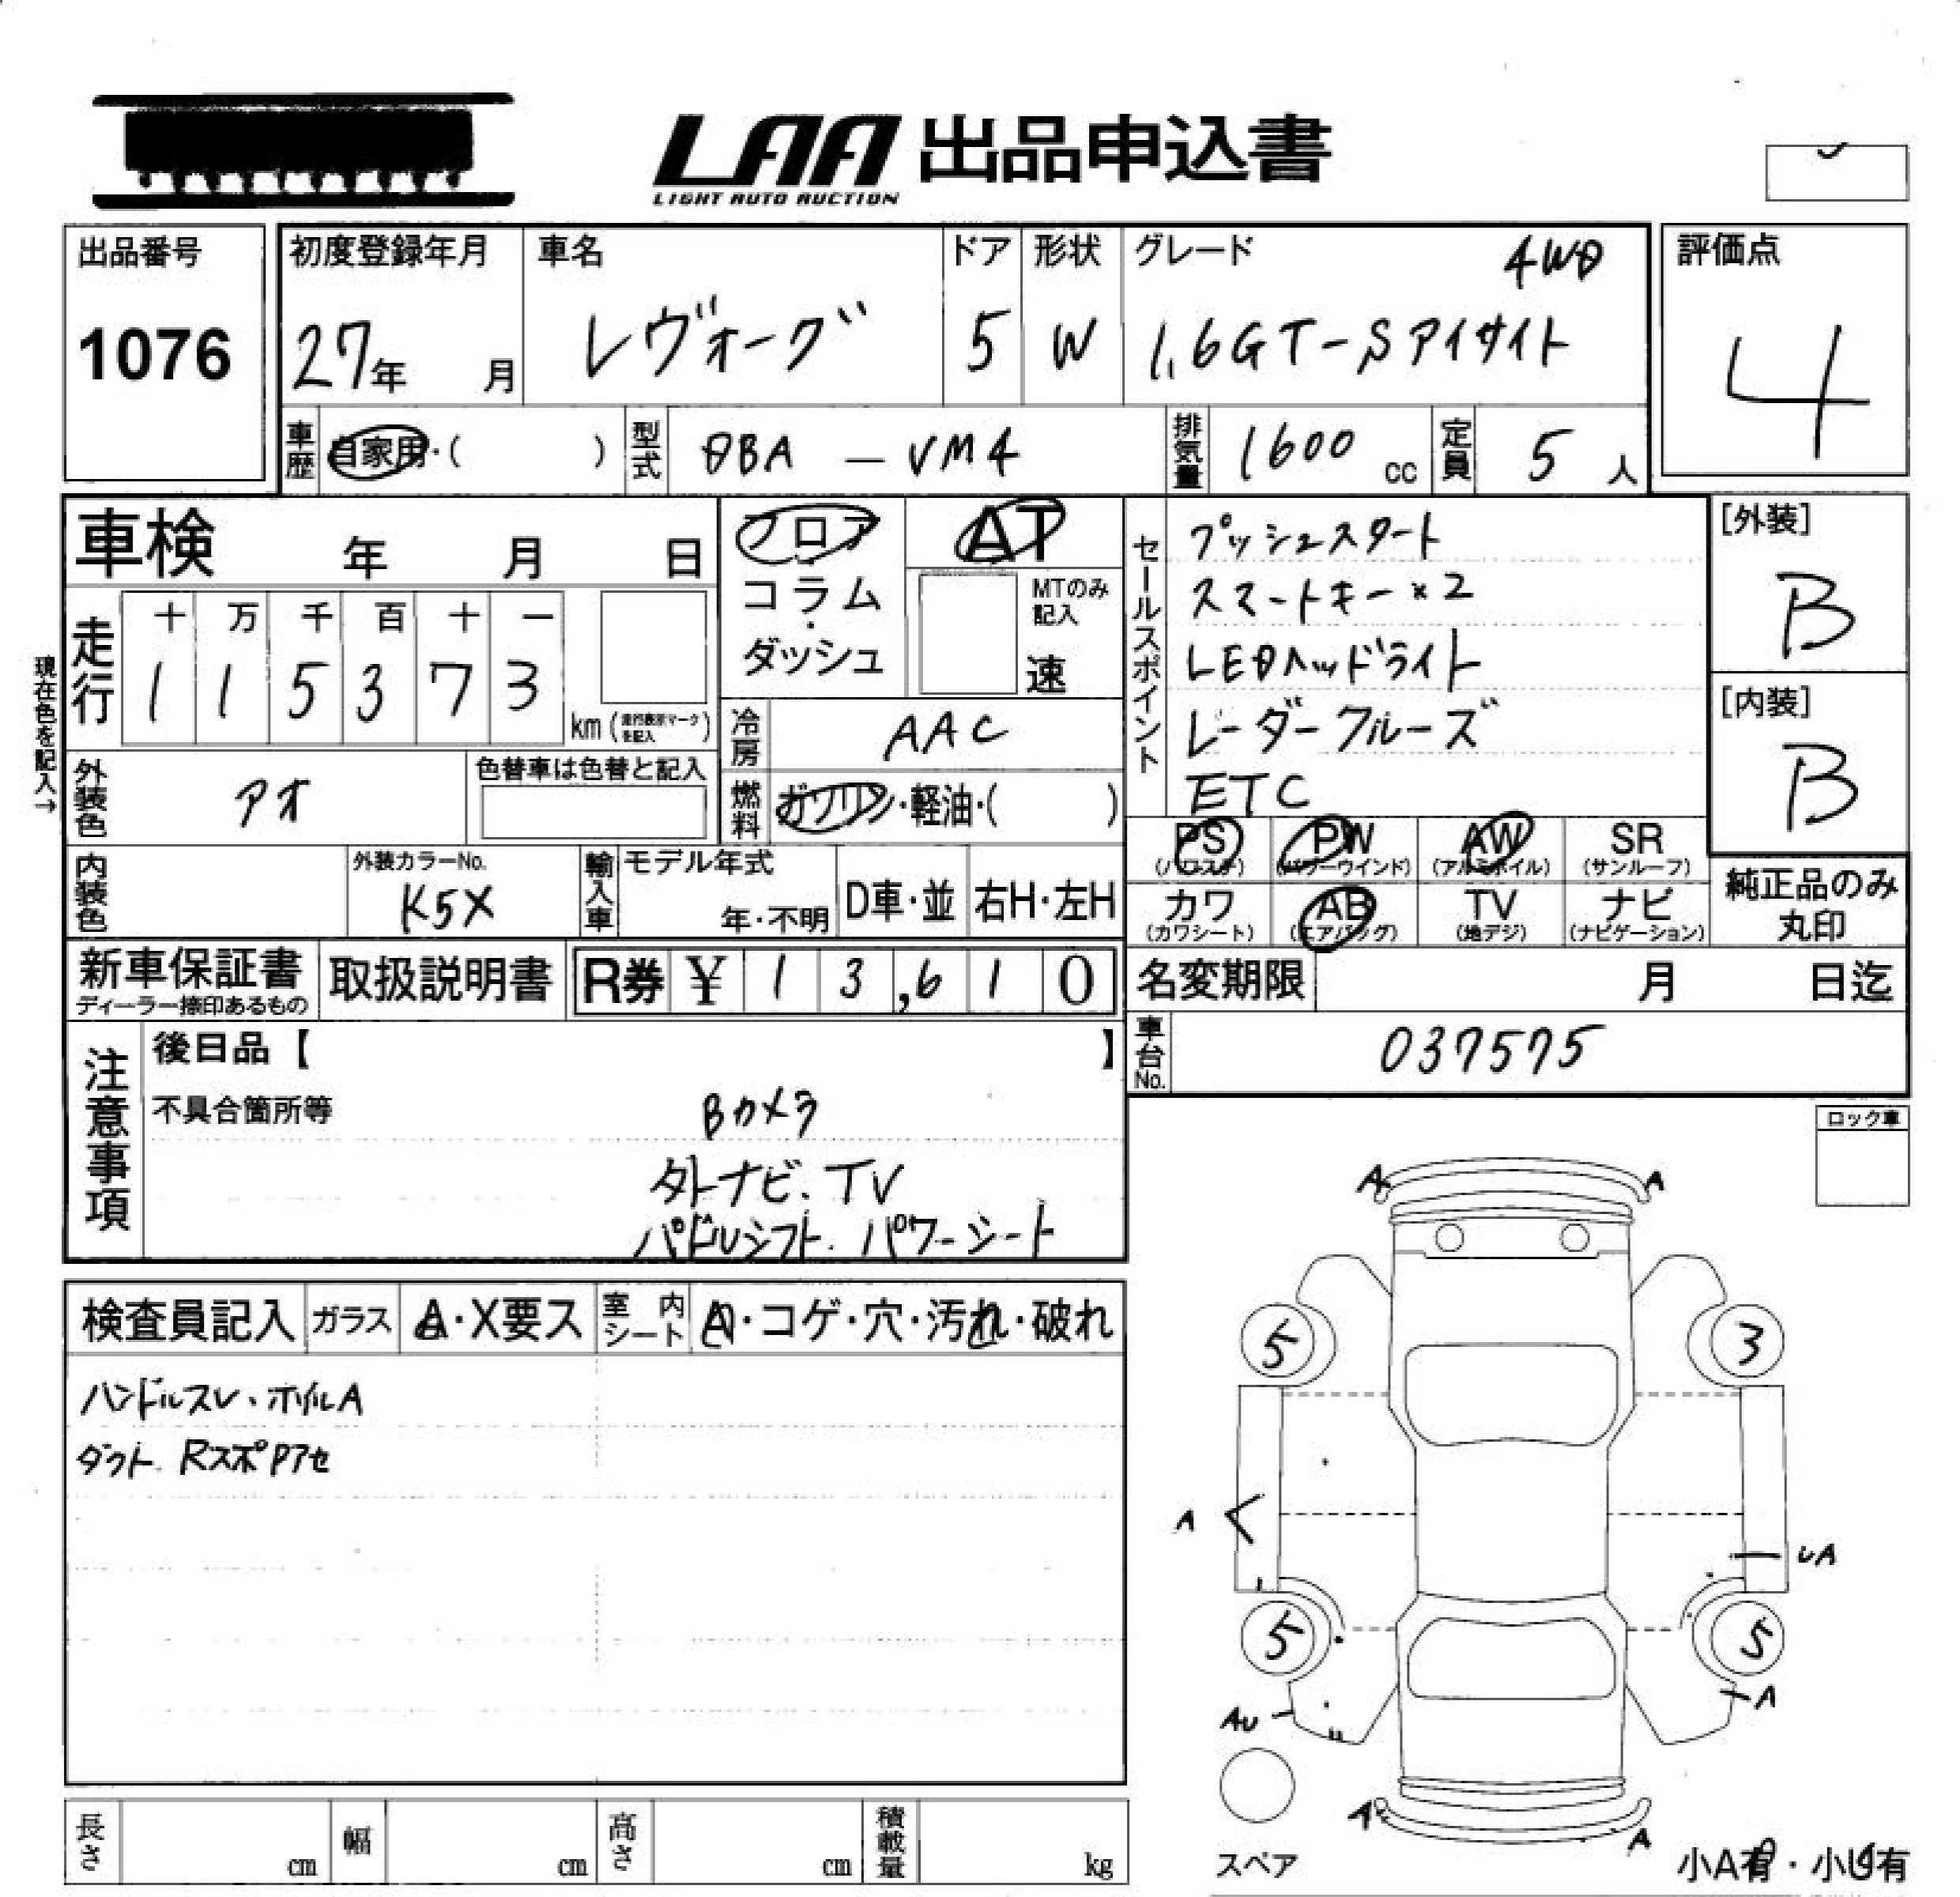 LAA 出品申込書
LIGHT AUTO AUCTION
出品番号
1076
初度登録年月
27年 月
車名
レヴォーグ
ドア
5
形状
W
グレード
4WD
1.6GT-Sアイサイト
評価点
4
車歴
自家用・( )
型式
DBA - VM4
排気量
1600 cc
定員
5 人
車検 年 月 日
現在色を記入→
走行
十 万 千 百 十 一
1 1 5 3 7 3
km (走行表示マークを記入)
フロア
コラム
・
ダッシュ
AT
MTのみ
記入
速
冷房
AAC
燃料
ガソリン・軽油・( )
セールスポイント
プッシュスタート
スマートキー×2
LEDヘッドライト
レーダークルーズ
ETC
[外装]
B
[内装]
B
外装色
アオ
色替車は色替と記入
内装色
外装カラーNo.
K5X
輸入車
モデル年式
年・不明
D車・並
右H・左H
PS
(パワステ)
PW
(パワーウインド)
AW
(アルミホイル)
SR
(サンルーフ)
カワ
(カワシート)
AB
(エアバッグ)
TV
(地デジ)
ナビ
(ナビゲーション)
純正品のみ
丸印
新車保証書
ディーラー捺印あるもの
取扱説明書
R券 ¥ 1 3,6 1 0
名変期限 月 日迄
車台No.
037575
注意事項
後日品【 】
不具合箇所等
Bカメラ
外ナビ、TV
パドルシフト、パワーシート
ロック車
検査員記入
ガラス
A・X要ス
室内シート
A・コゲ・穴・汚れ・破れ
ハンドルスレ、ホイルA
ダクト、RスポPアセ
A
A
5
3
A
UA
5
5
AU
A
A
A
スペア
小A有・小U有
長さ cm
幅 cm
高さ cm
積載量 kg